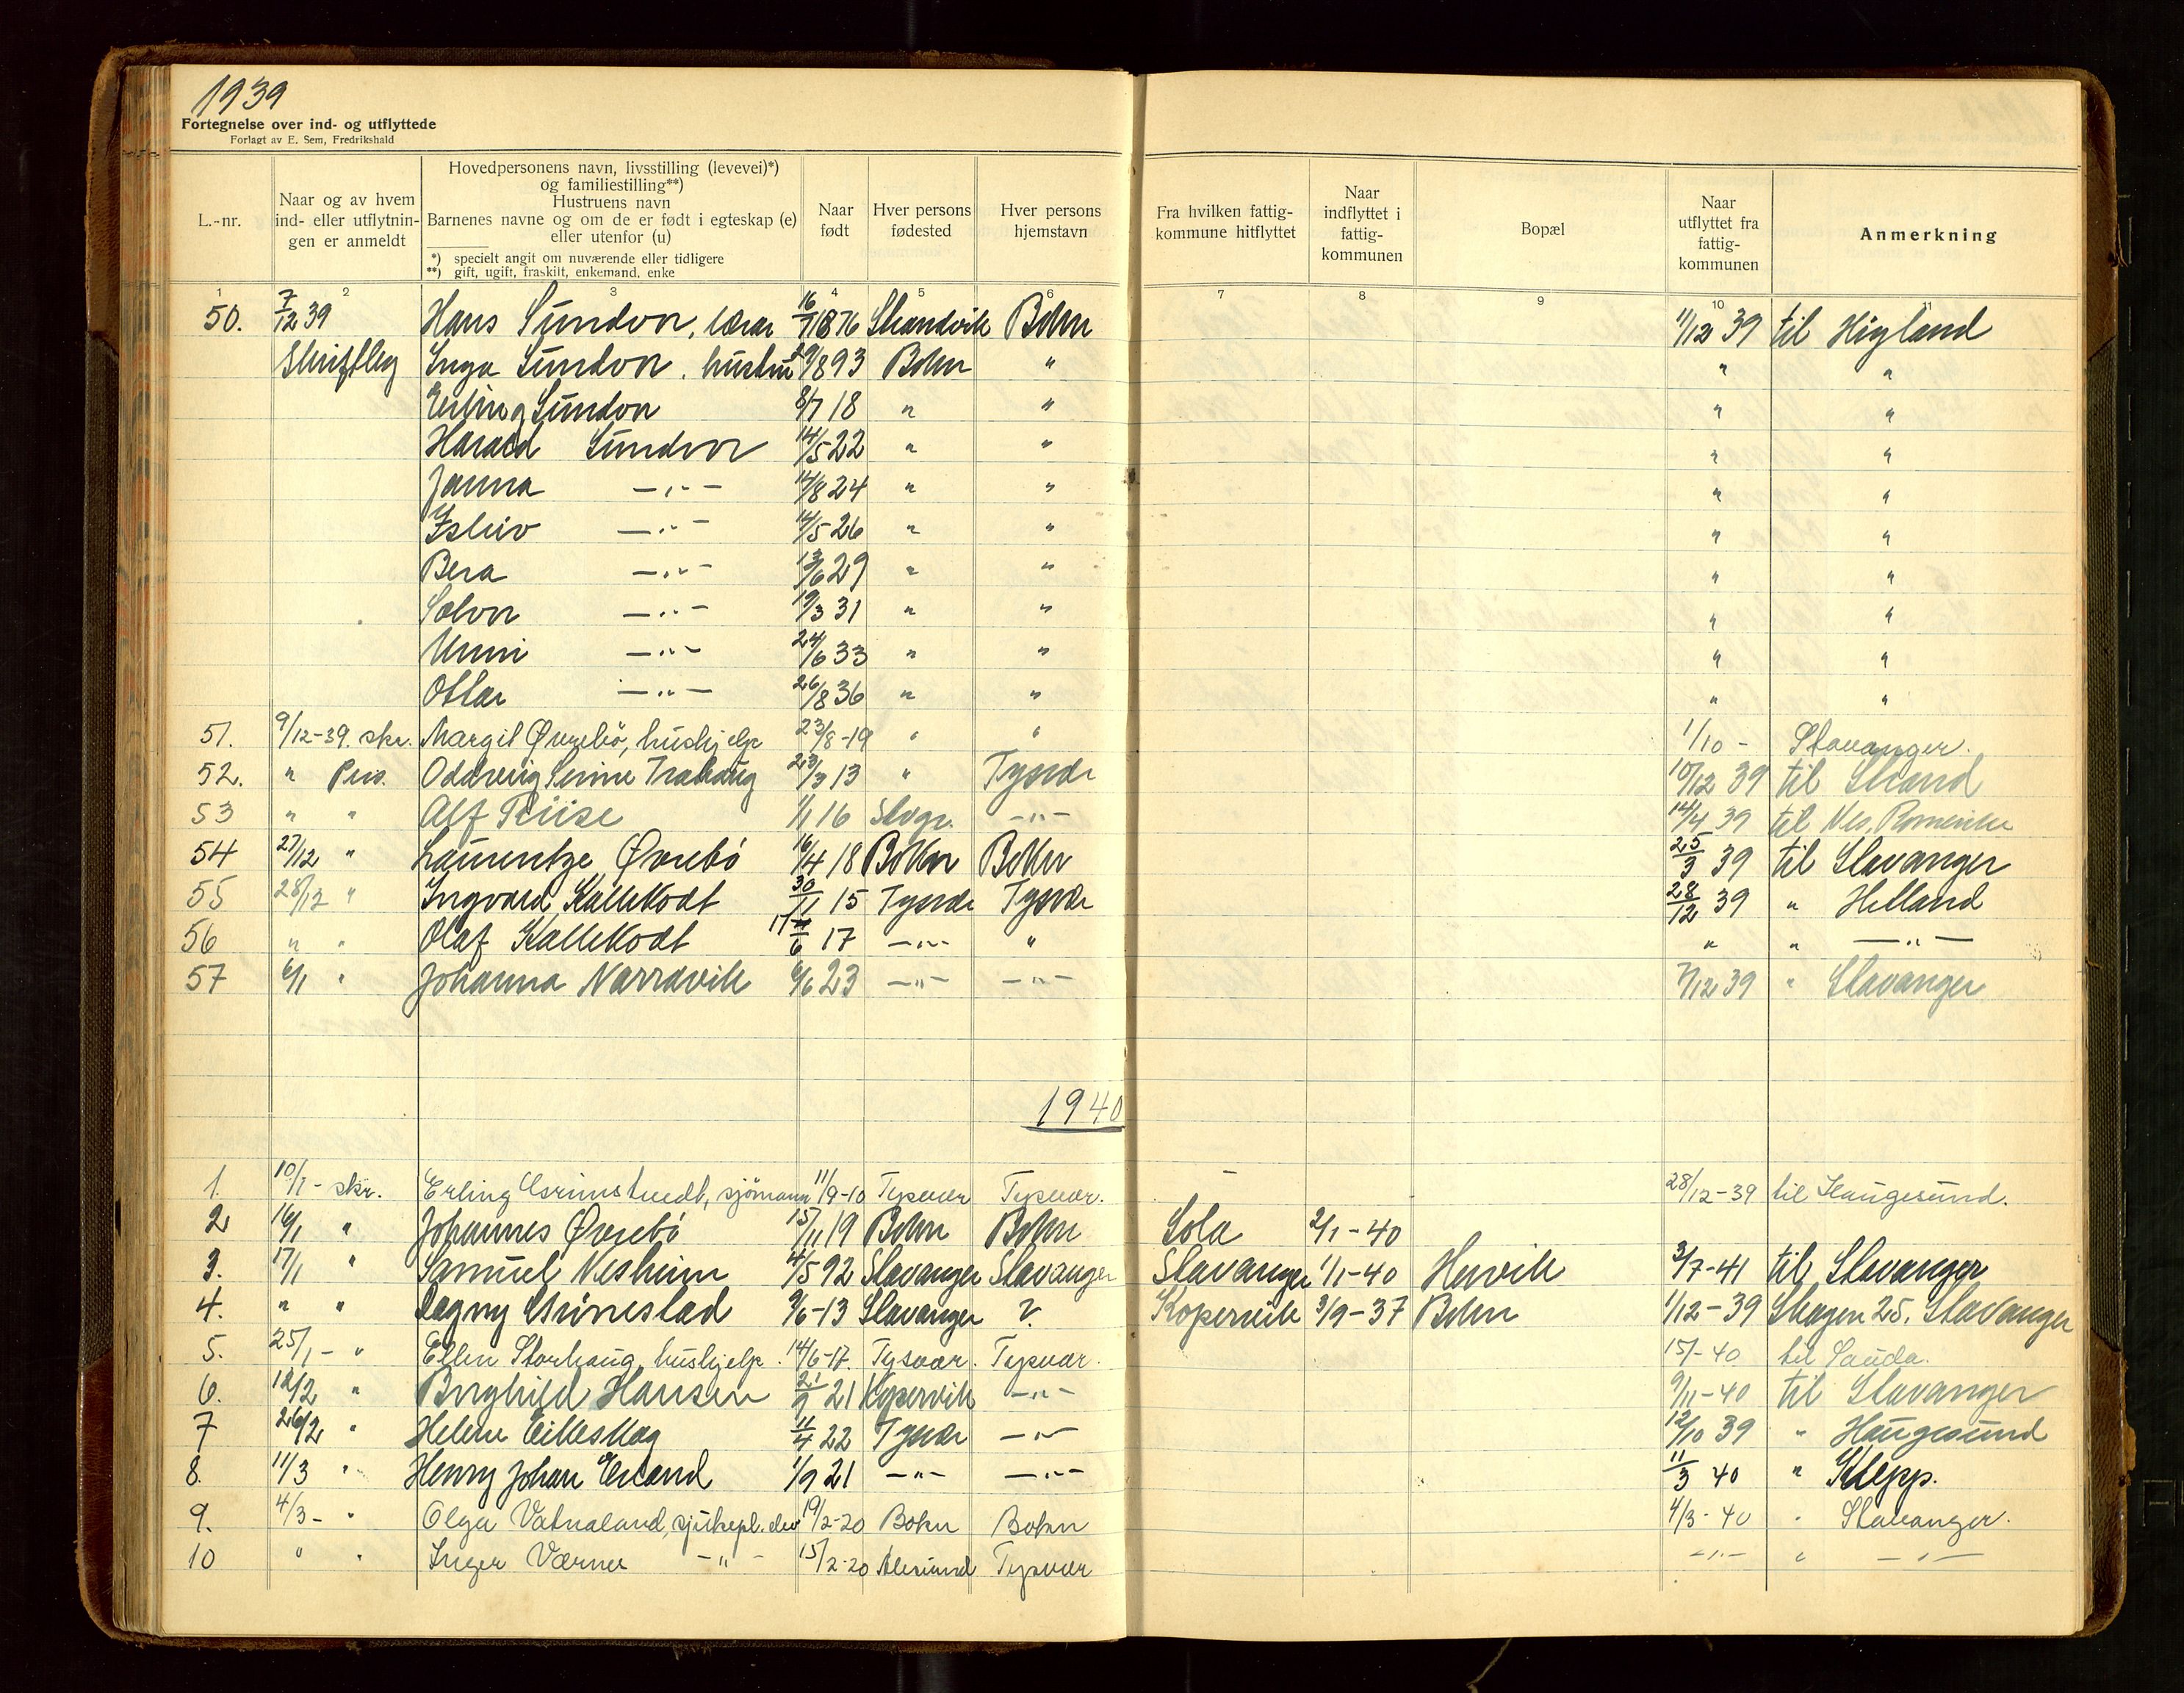 1939
Fortegnelse over ind- og utflyttede
Forlagt av E. Sem, Fredrikshald
L.-nr. | Naar og av hvem ind- eller utflytningen er anmeldt | Hovedpersonens navn, livsstilling (levevei)*) og familiestilling**) Hustruens navn Barnenes navne og om de er født i egteskap (e) eller utenfor (u) *) specielt angit om nuværende eller tidligere **) gift, ugift, fraskilt, enkemand, enke | Naar født | Hver persons fødested | Hver persons hjemstavn | Fra hvilken fattigkommune hitflyttet | Naar indflyttet i fattigkommunen | Bopæl | Naar utflyttet fra fattigkommunen | Anmerkning
1 2 3 4 5 6 7 8 9 10 11
50. 7/12 39 Hans Sundvor, lærar 16/7 1876 Strandvik Bokn 11/12 39 til Høgland
Skriftleg Inga Sundvor, hustru 29/8 93 Bokn " " "
Erling Sundvor 8/7 18 " " " "
Harald Sundvor 14/5 22 " " " "
Janna —"— 14/8 24 " " " "
Isleiv —"— 14/5 26 " " " "
Bera —"— 13/6 29 " " " "
Solvor —"— 19/3 31 " " " "
Unni —"— 24/6 33 " " " "
Ottar —"— 26/8 36 " " " "
51. 9/12-39. skr. Margit Øvrebö, hushjelp 23/8-19 " " 1/10 - Stavanger.
52. " Pers. Oddveig Senine 23/3 13 " Tysvær 10/12 39 til Strand
53 " " Alf Friise 1/1 16 Stvgr. —"— 14/4 39 til Nes, Romerike
54 27/12 " Laurentze Øvrebö 16/4 18 Bokn Bokn 25/3 39 til Stavanger
55 28/12 " Ingvard Kallekodt 30/11 15 Tysvær Tysvær 28/12 39 " Hetland
56 " " Olaf Kallekodt 17/6 17 —"— " " " —"—
57 6/1 " Johanna Narravik 6/6 23 —"— —"— 7/12 39 " Stavanger
1940
1. 10/1 - skr. Erling Grinstvedt, sjömann 11/9-10 Tysvær Tysvær. 28/12-39 til Haugesund.
2. 16/1 " Johannes Øvrebö 15/11 19 Bokn Bokn Sola 2/1-40
3. 17/1 " Samuel Nesheim 4/5 92 Stavanger Stavanger Stavanger 1/1-40 Hervik 3/7-41 til Stavanger
4. " " Dagny 9/6-13 Stavanger ?. Kopervik 3/9-37 Bokn 1/12-39 Skagen 25. Stavanger
5. 25/1 - " Ellen Storhaug, hushjelp. 14/6-17. Tysvær. Tysvær. 15/1-40 til Sauda.
6. 12/2 " Borghild Hansen 21/9 21 Kopervik —"— 9/11-40 til Stavanger
7 26/2 " Helene Eikeskog 11/4 22 Tysvær —"— 12/10 39 " Haugesund
8. 11/3 " Henry Johan Erland 1/9 21 —"— —"— 11/3 40 " Klepp.
9. 4/3 - " Olga Vatnaland, sjukepl. elev 19/2-20 Bokn Bokn 4/3-40 " Stavanger.
10 " " Inger Værnes —"— 15/2-20 Alesund Tysvær —"— " —"—